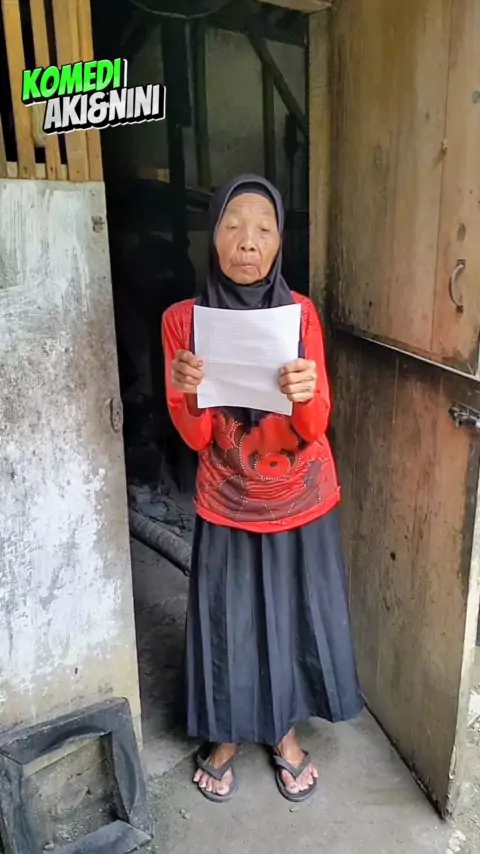 KOMEDI
AKI&NINI